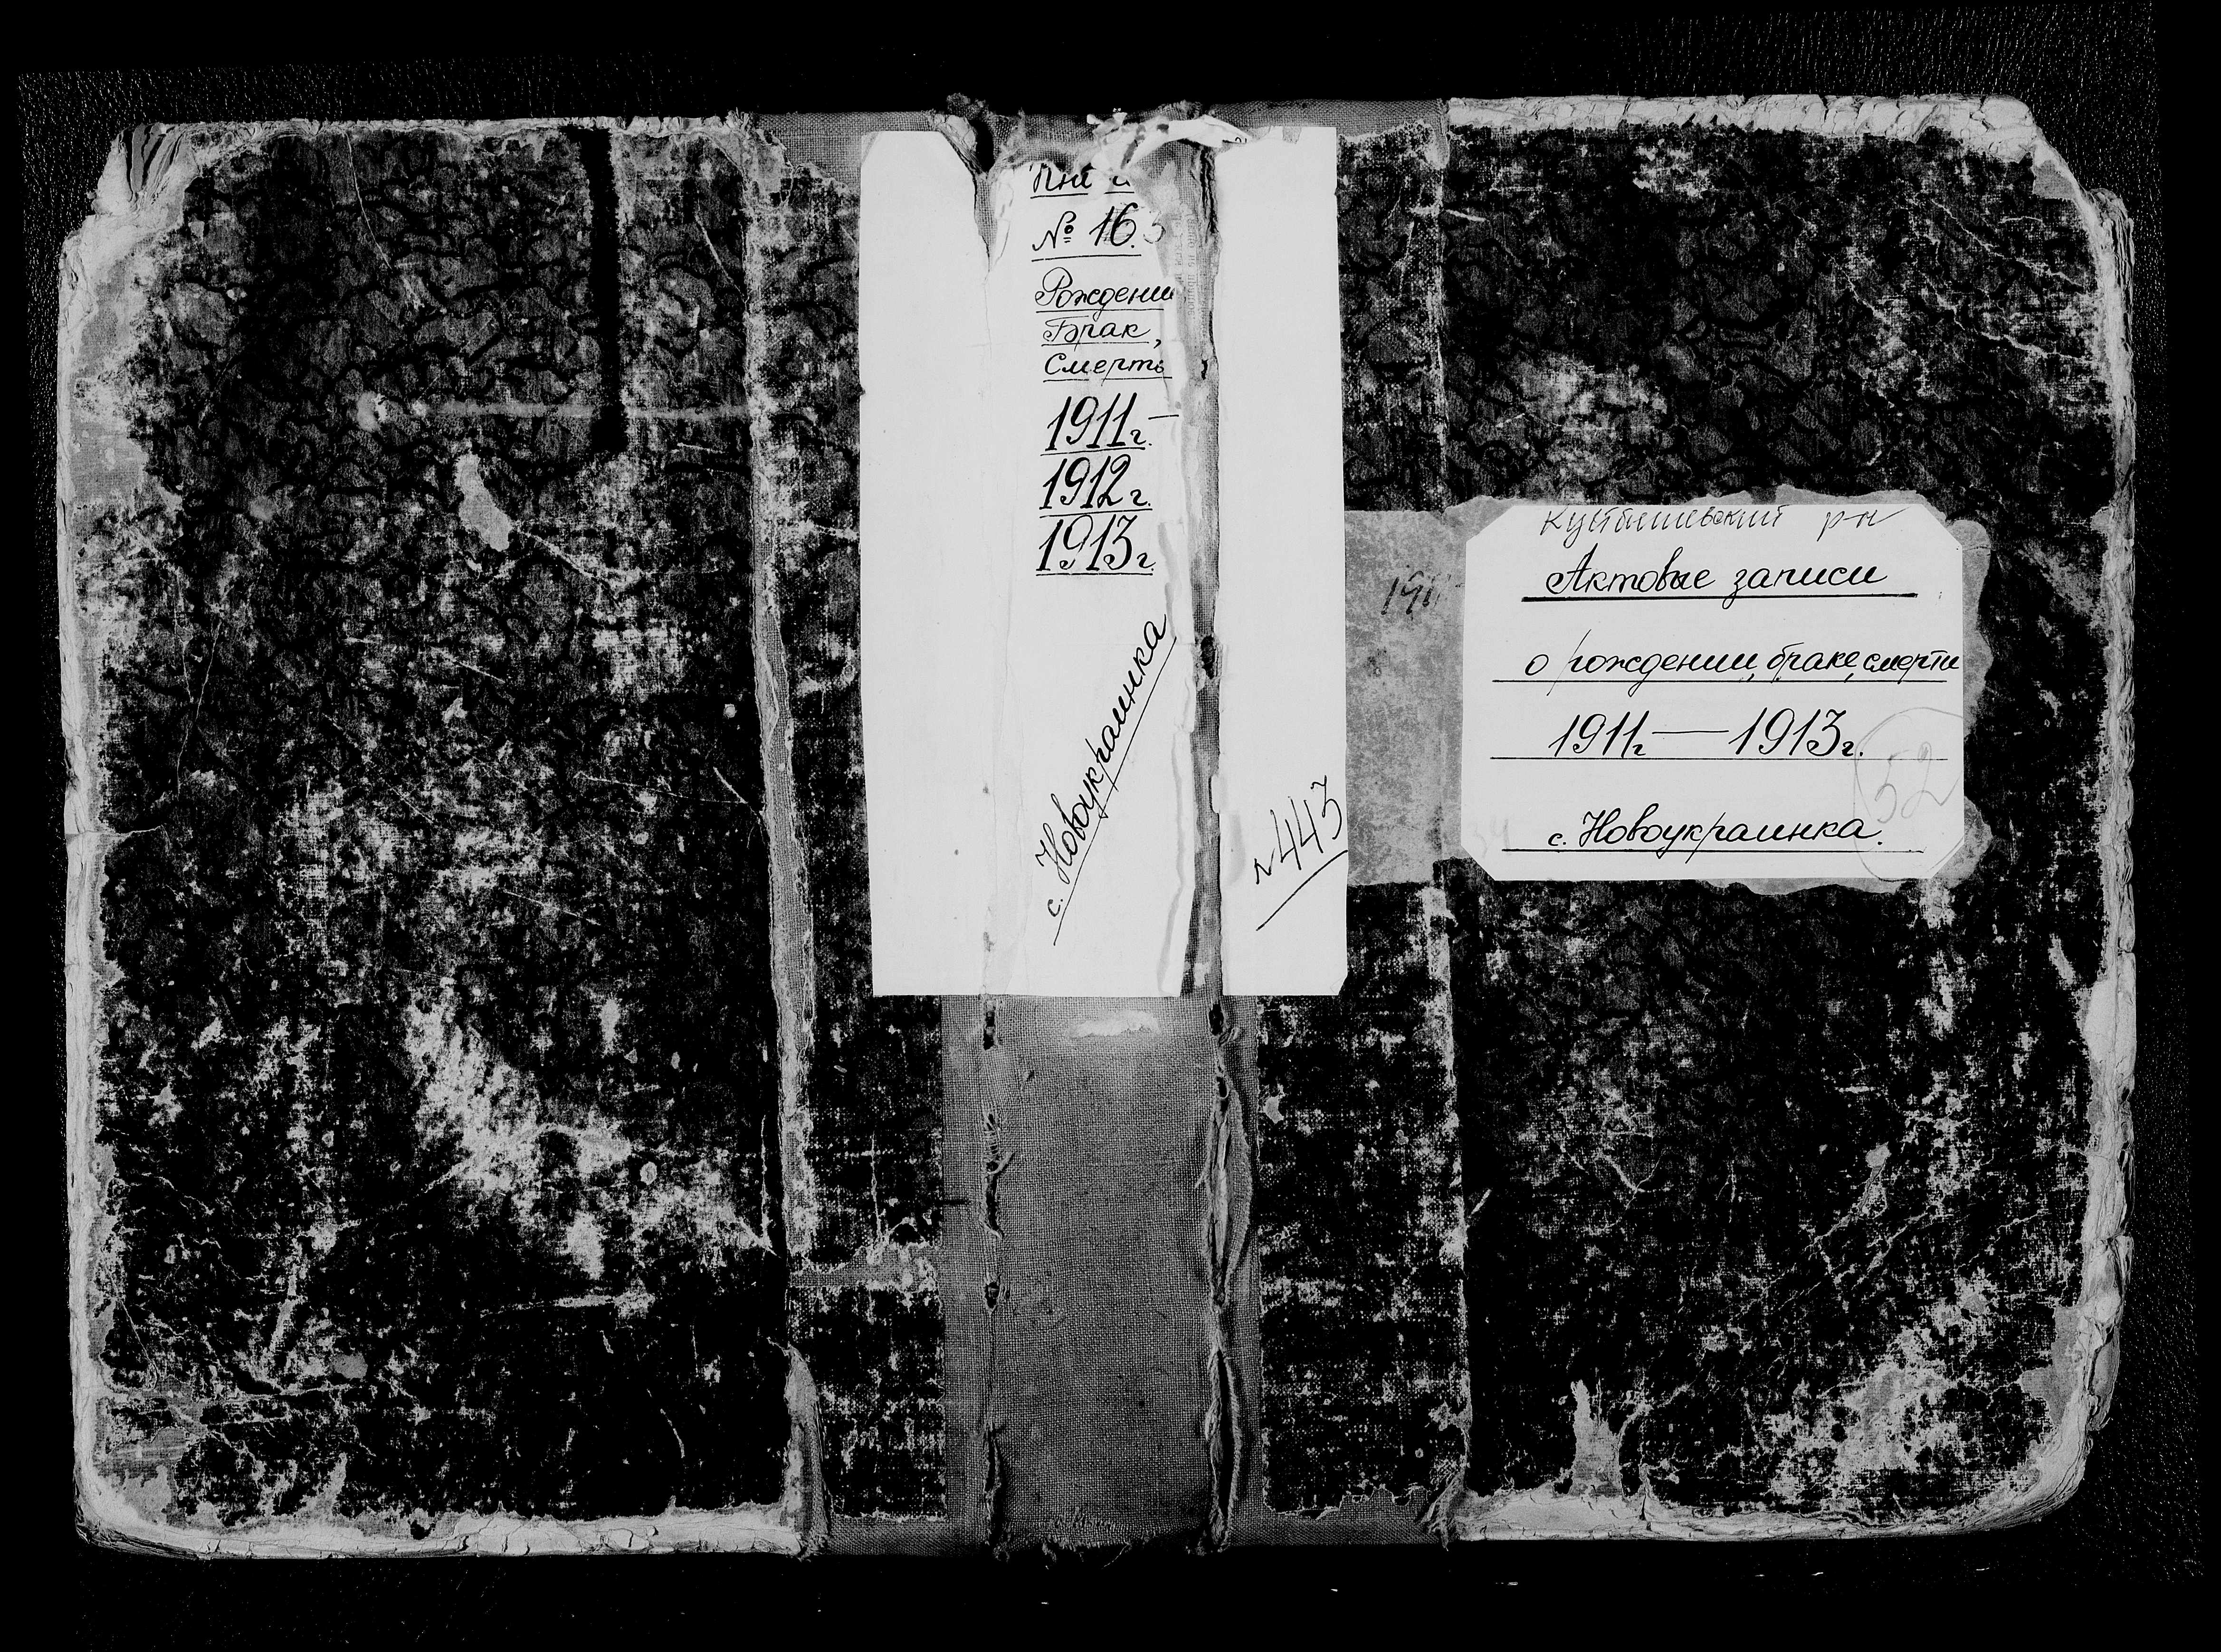 № 163
Рождении
Брак,
Смерть
1911г. —
1912г.
1913г.
с. Новоукраинка
№443
Куйбышевский р-н
Актовые записи
о рождении, браке, смерти
1911г — 1913г.
52
с. Новоукраинка.